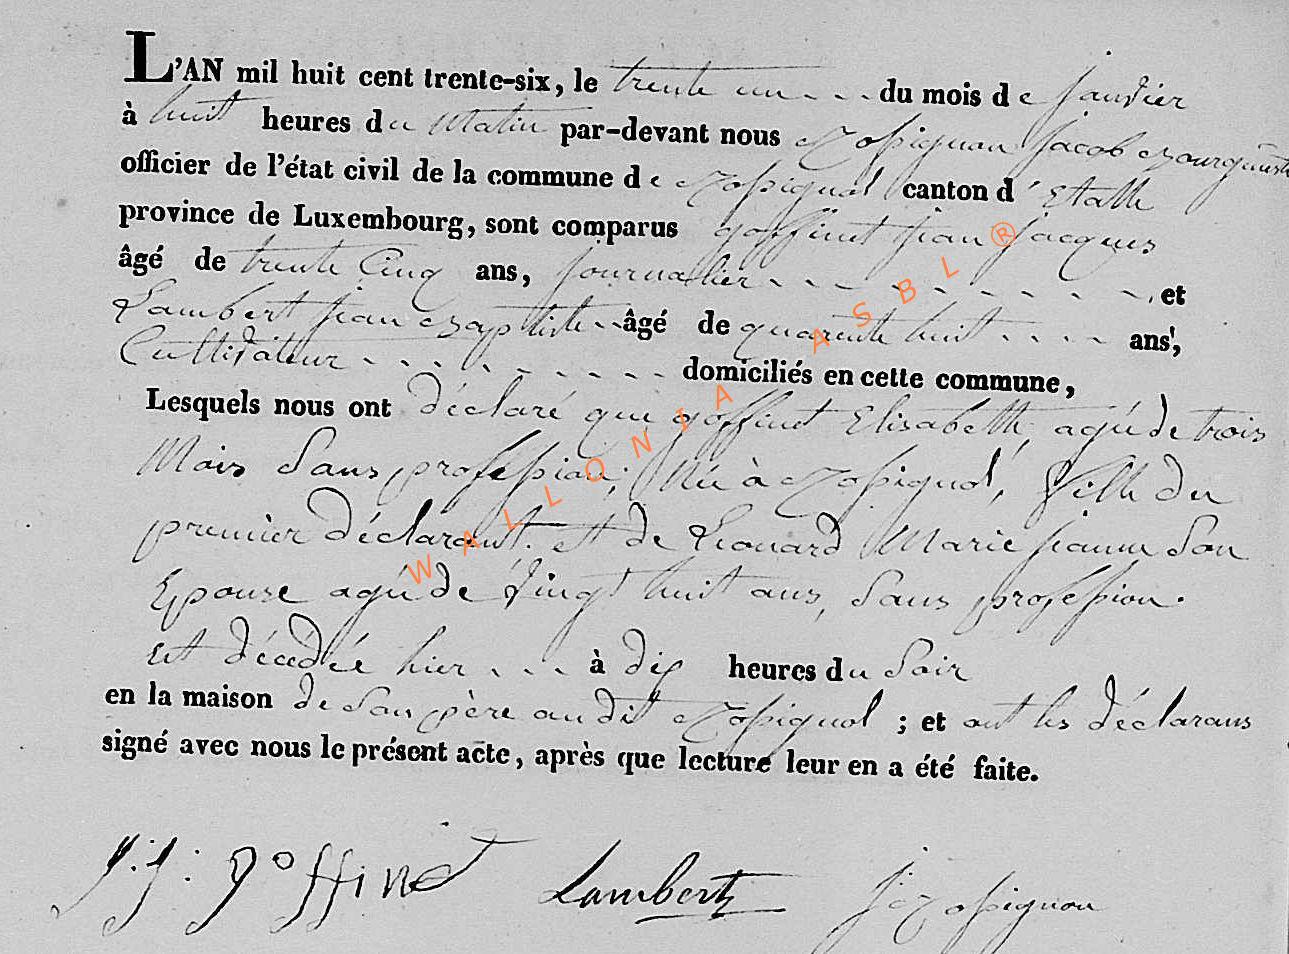 L'AN mil huit cent trente-six, le trente un - - - du mois de janvier
à huit heures du Matin par-devant nous Rossignon Jacob Bourgmestre
officier de l'état civil de la commune de Rossignol canton d'Etalle
province de Luxembourg, sont comparus goffinet jean jacques
âgé de trente Cinq ans, journalier - - - - - - - - - et
Lambert jean Baptiste - - âgé de quarente huit - - - - ans,
Cultivateur - - - - - - - - - domiciliés en cette commune,
Lesquels nous ont déclaré que goffinet Elisabeth, agée de trois
Mois Sans profession, Née à Rossignol, fille du
premier déclarant. et de Liouard Marie jeanne Son
Epouse agée de vingt huit ans, Sans profession.
est décédée hier - - - à dix heures du Soir
en la maison de Son père audit Rossignol ; et ont les déclarans
signé avec nous le présent acte, après que lecture leur en a été faite.
J. J. goffinet Lambert J Rossignon
WALLONIA ASBL ®